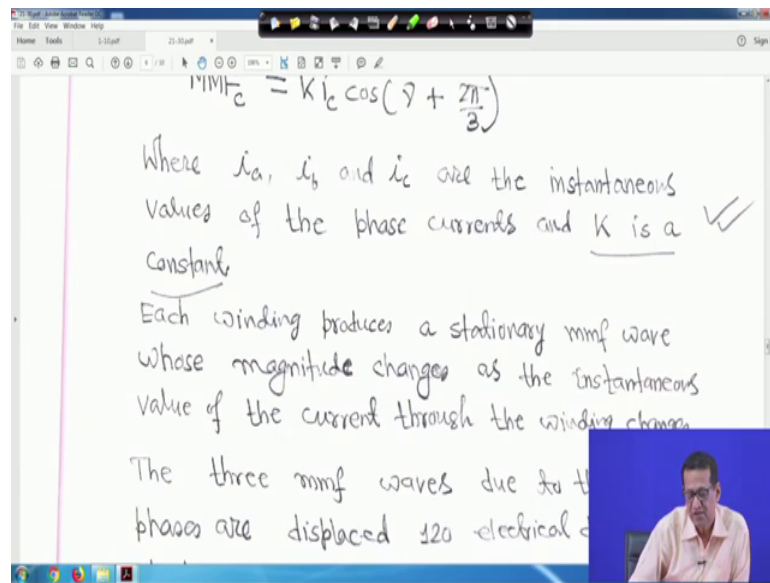 21-30.pdf - Adobe Acrobat Reader DC
File Edit View Window Help
Home Tools 1-10.pdf 21-30.pdf × Sign
MMFc = K ic cos(γ + 2π/3)
Where ia, ib and ic are the instantaneous
values of the phase currents and K is a
constant.
Each winding produces a stationary mmf wave
whose magnitude changes as the instantaneous
value of the current through the winding changes
The three mmf waves due to
phases are displaced 120 electrical